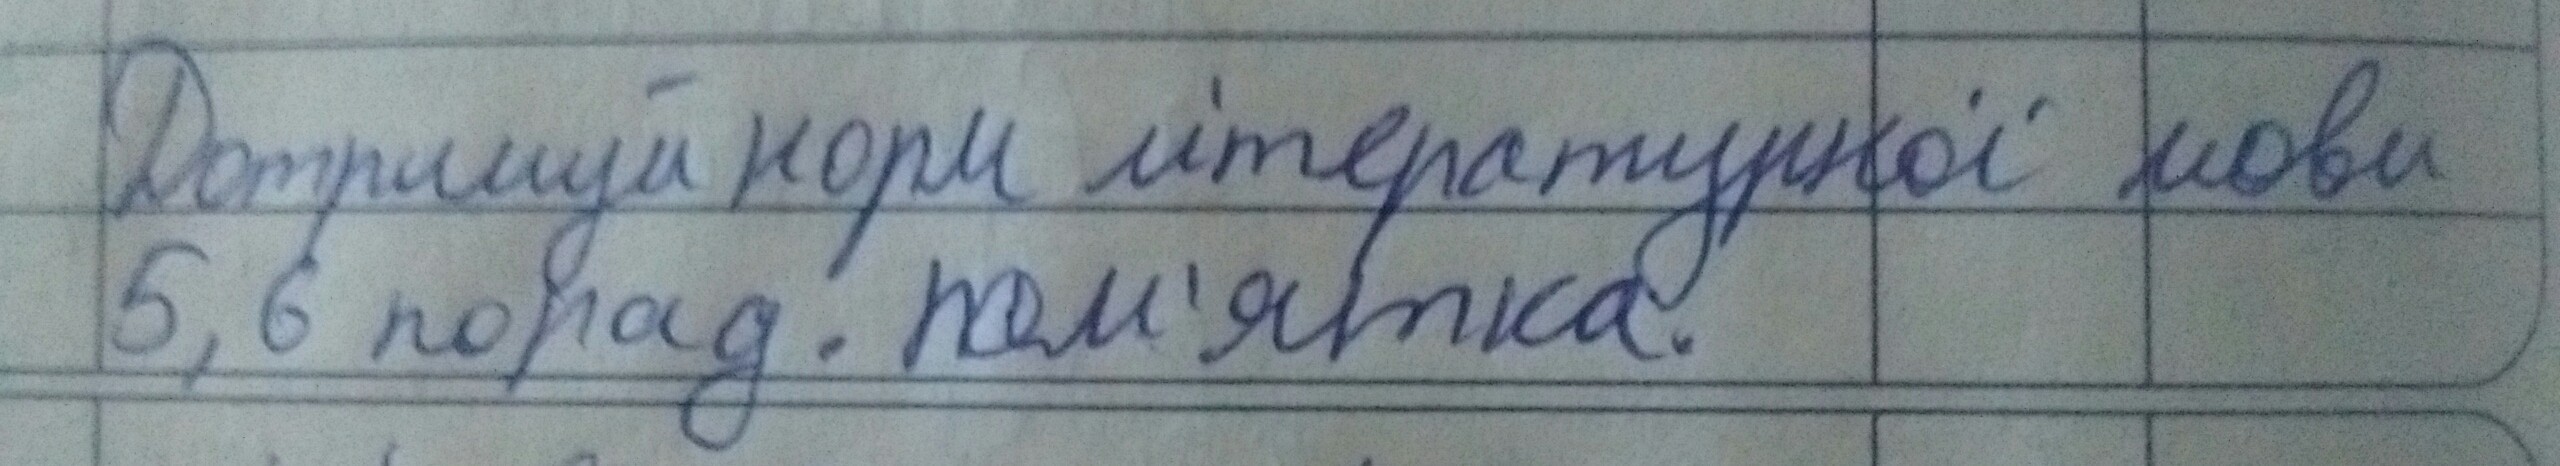 Дотримуй норм літературної мови
5, 6 порад. пам'ятка.